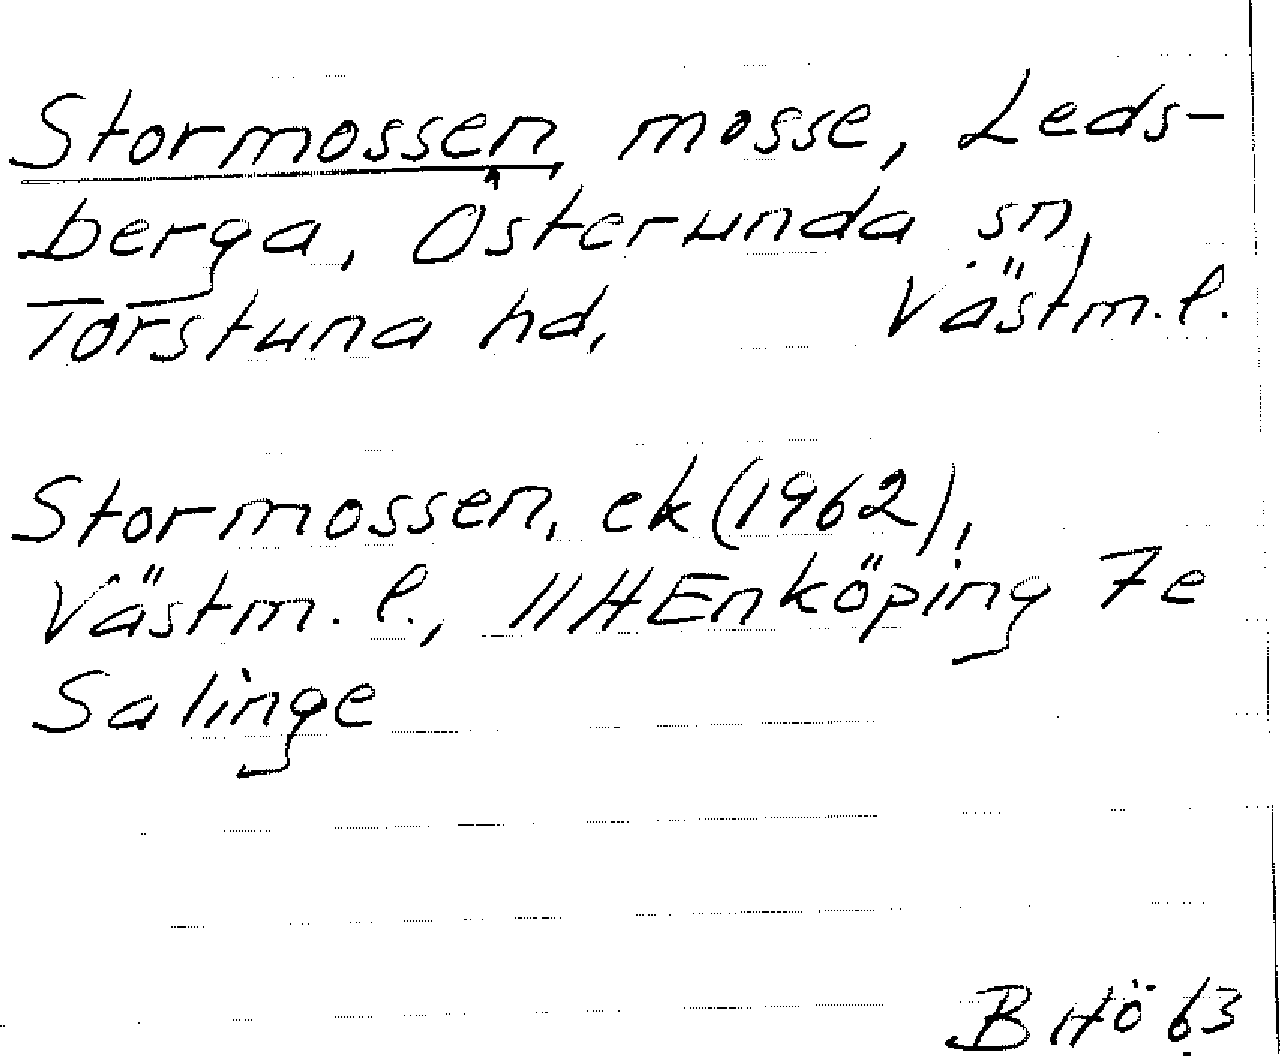 Stormossen, mosse, Leds-
berga, Österunda sn,
Torstuna hd, Västm. l.
Stormossen, ek (1962),
Västm. l., 11H Enköping 7e
Salinge
B Hö 63